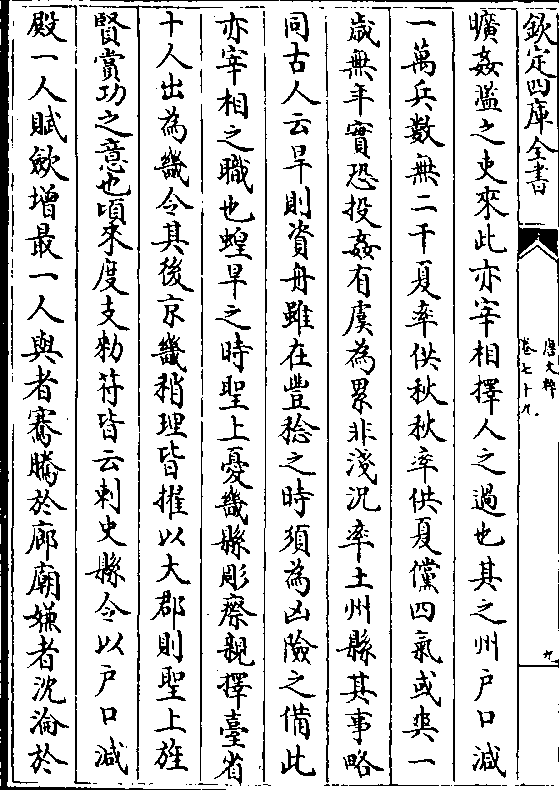 欽定四庫全書
唐文粹
卷七十九
九
曠姦濫之吏來此亦宰相擇人之過也其之州戶口減
一萬兵数無二千夏率供秋秋率供夏儻四氣或爽一
歲無年實恐投姦有虞為累非淺況率土州縣其事略
同古人云旱則資舟雖在豐稔之時須為凶險之備此
亦宰相之職也蝗旱之時聖上憂畿縣彫瘵親擇臺省
十人出為畿令其後京畿稍理皆擢以大郡則聖上旌
賢賞功之意也頃來度支勑符皆云刺史縣令以戶口減
殿一人賦斂增最一人與者騫騰於廊廟嫌者沈淪於